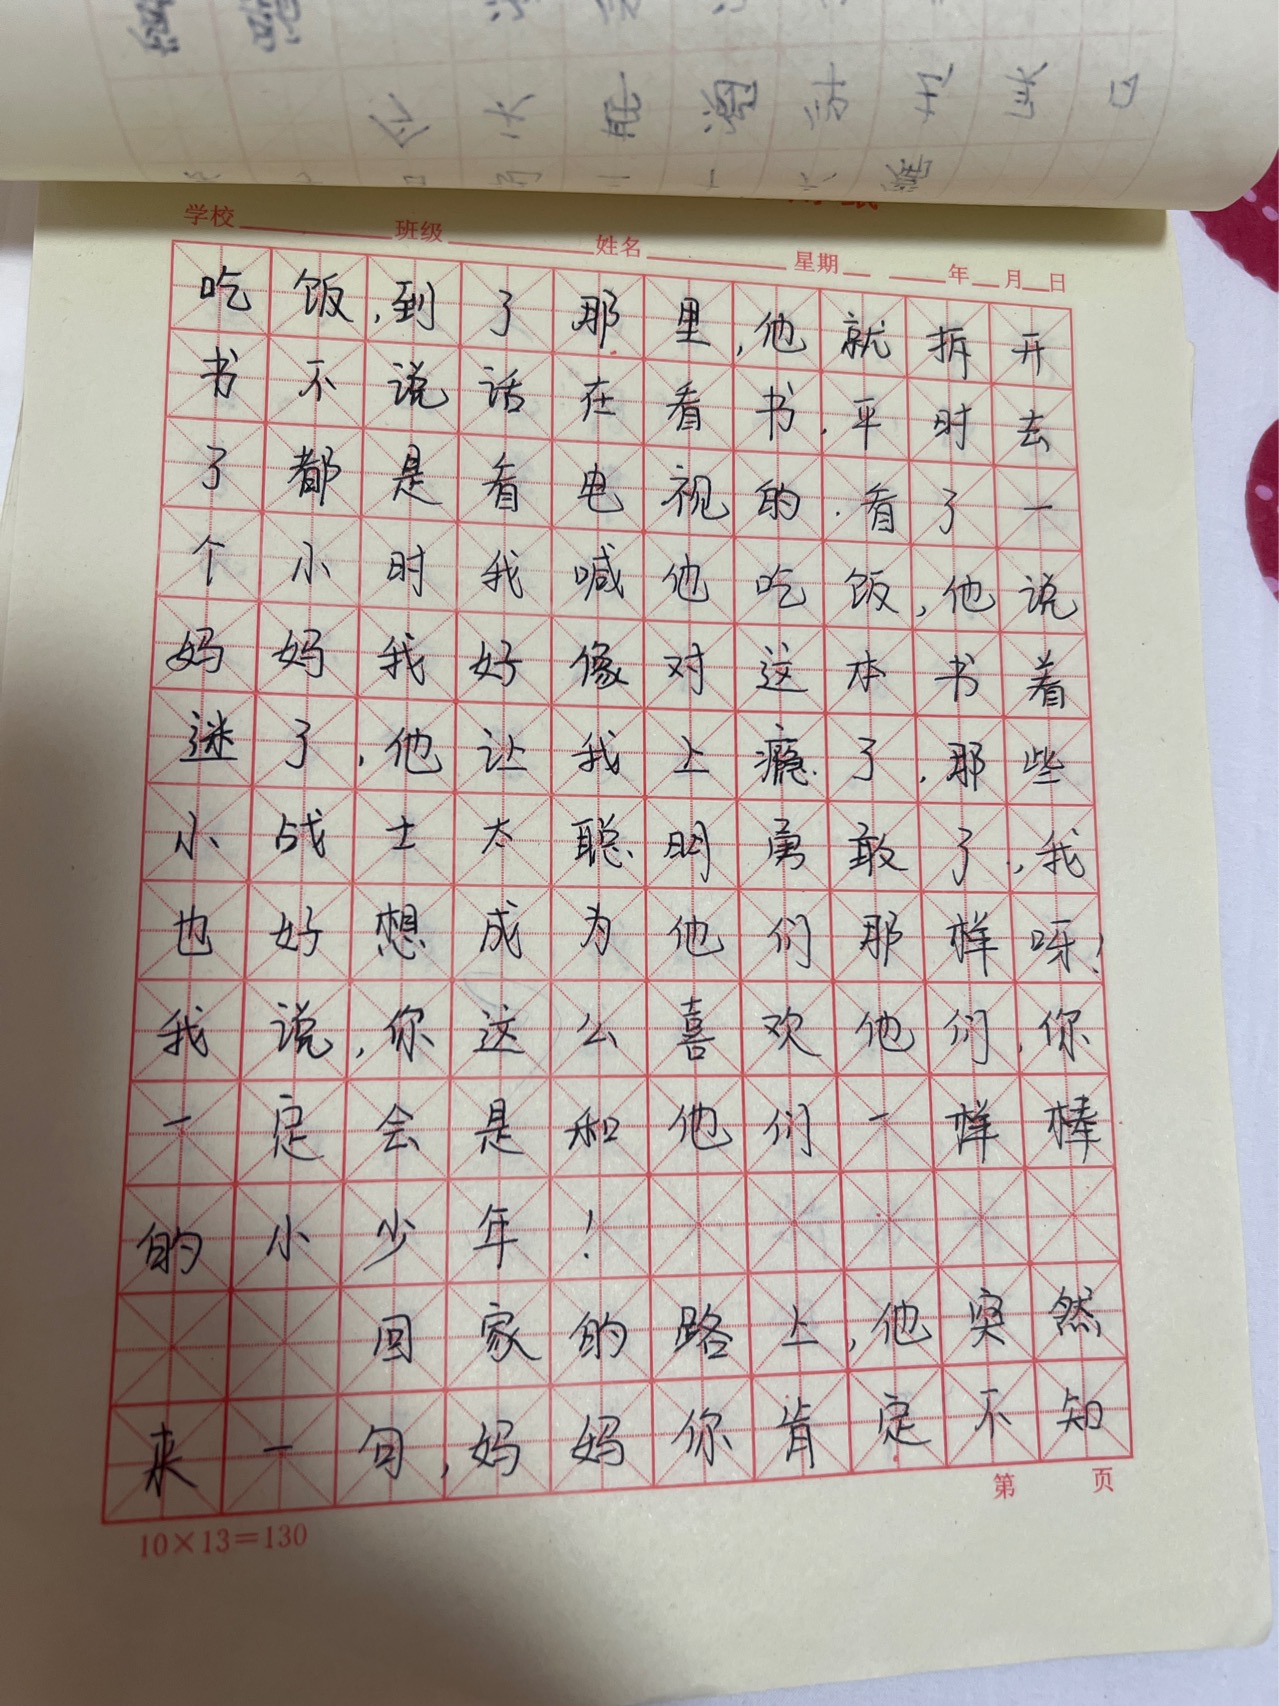 学校 班级 姓名 星期 年 月 日
吃饭,到了那里,他就拆开
书不说话在看书.平时去
了都是看电视的.看了一
个小时我喊他吃饭,他说
妈妈我好像对这本书着
迷了,他让我上瘾了,那些
小战士太聪明勇敢了,我
也好想成为他们那样呀!
我说,你这么喜欢他们,你
一定会是和他们一样棒
的小少年!
回家的路上,他突然
来一句,妈妈你肯定不知
第 页
10×13=130